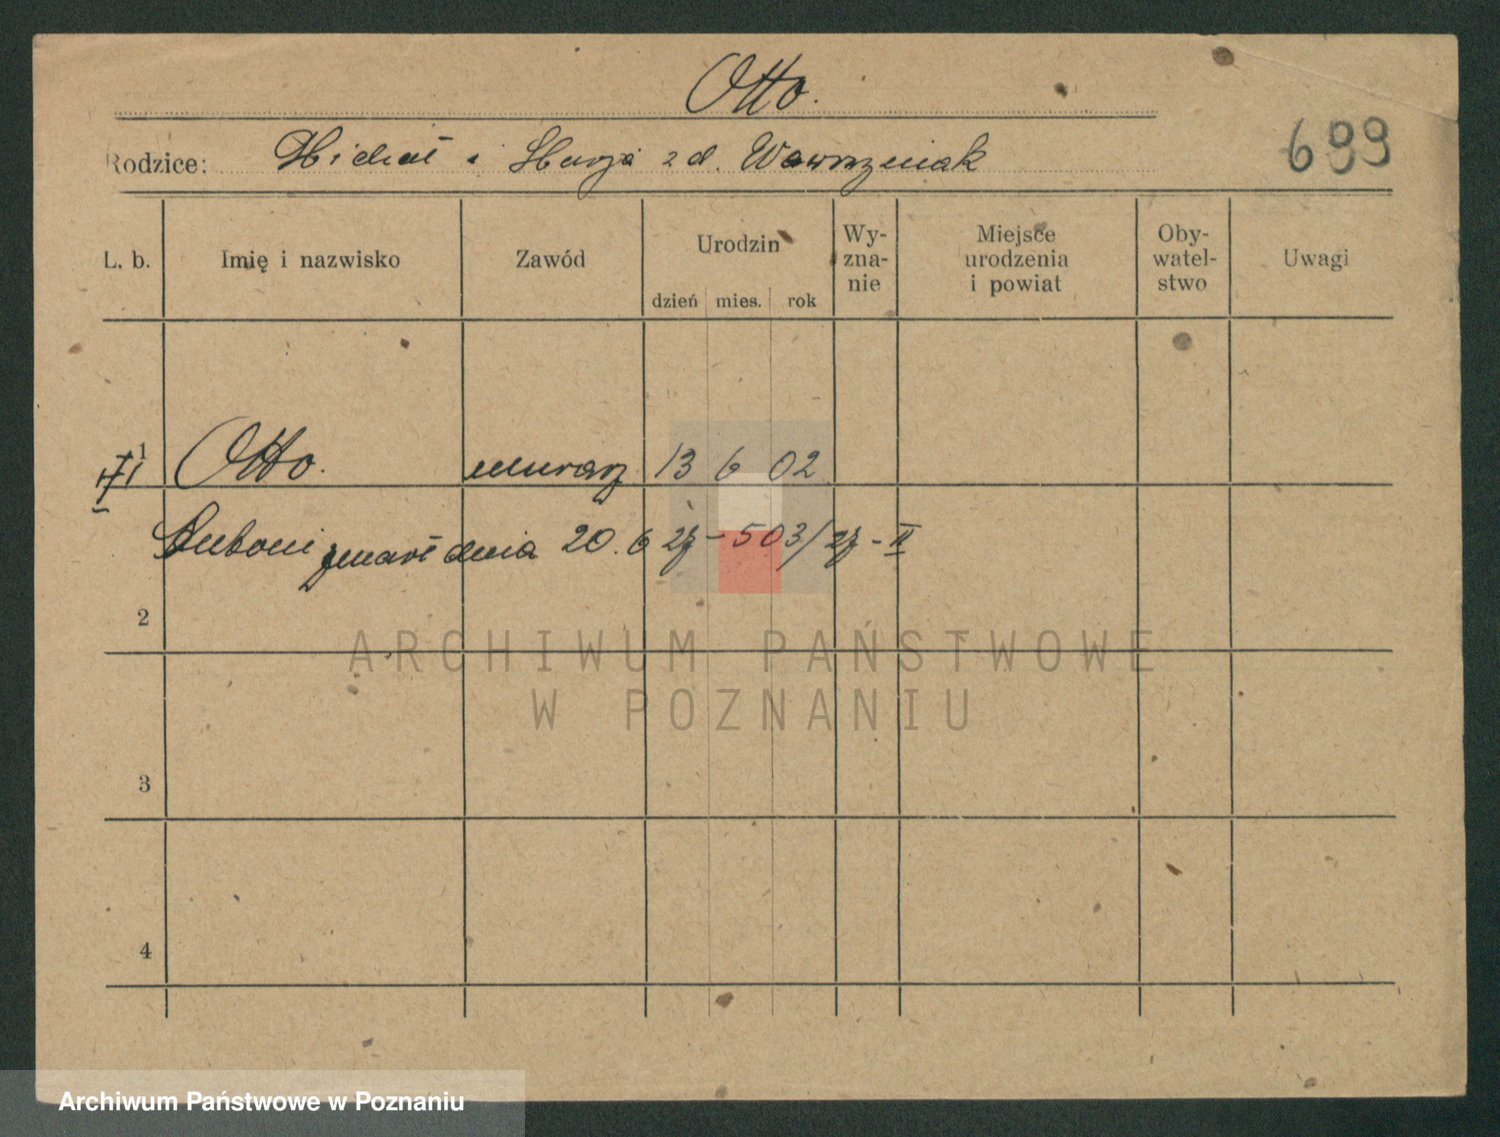 Otto.
Rodzice: Michał i Marja zd. Wawrzyniak
699
L. b. Imię i nazwisko Zawód Urodzin Wy-zna-nie Miejsce urodzenia i powiat Oby-watel-stwo Uwagi
dzień mies. rok
1 Otto. murarz 13 6 02
Antoni zmarł dnia 20. 6 27 - 503/27 - II
2
ARCHIWUM PAŃSTWOWE
W POZNANIU
3
4
Archiwum Państwowe w Poznaniu